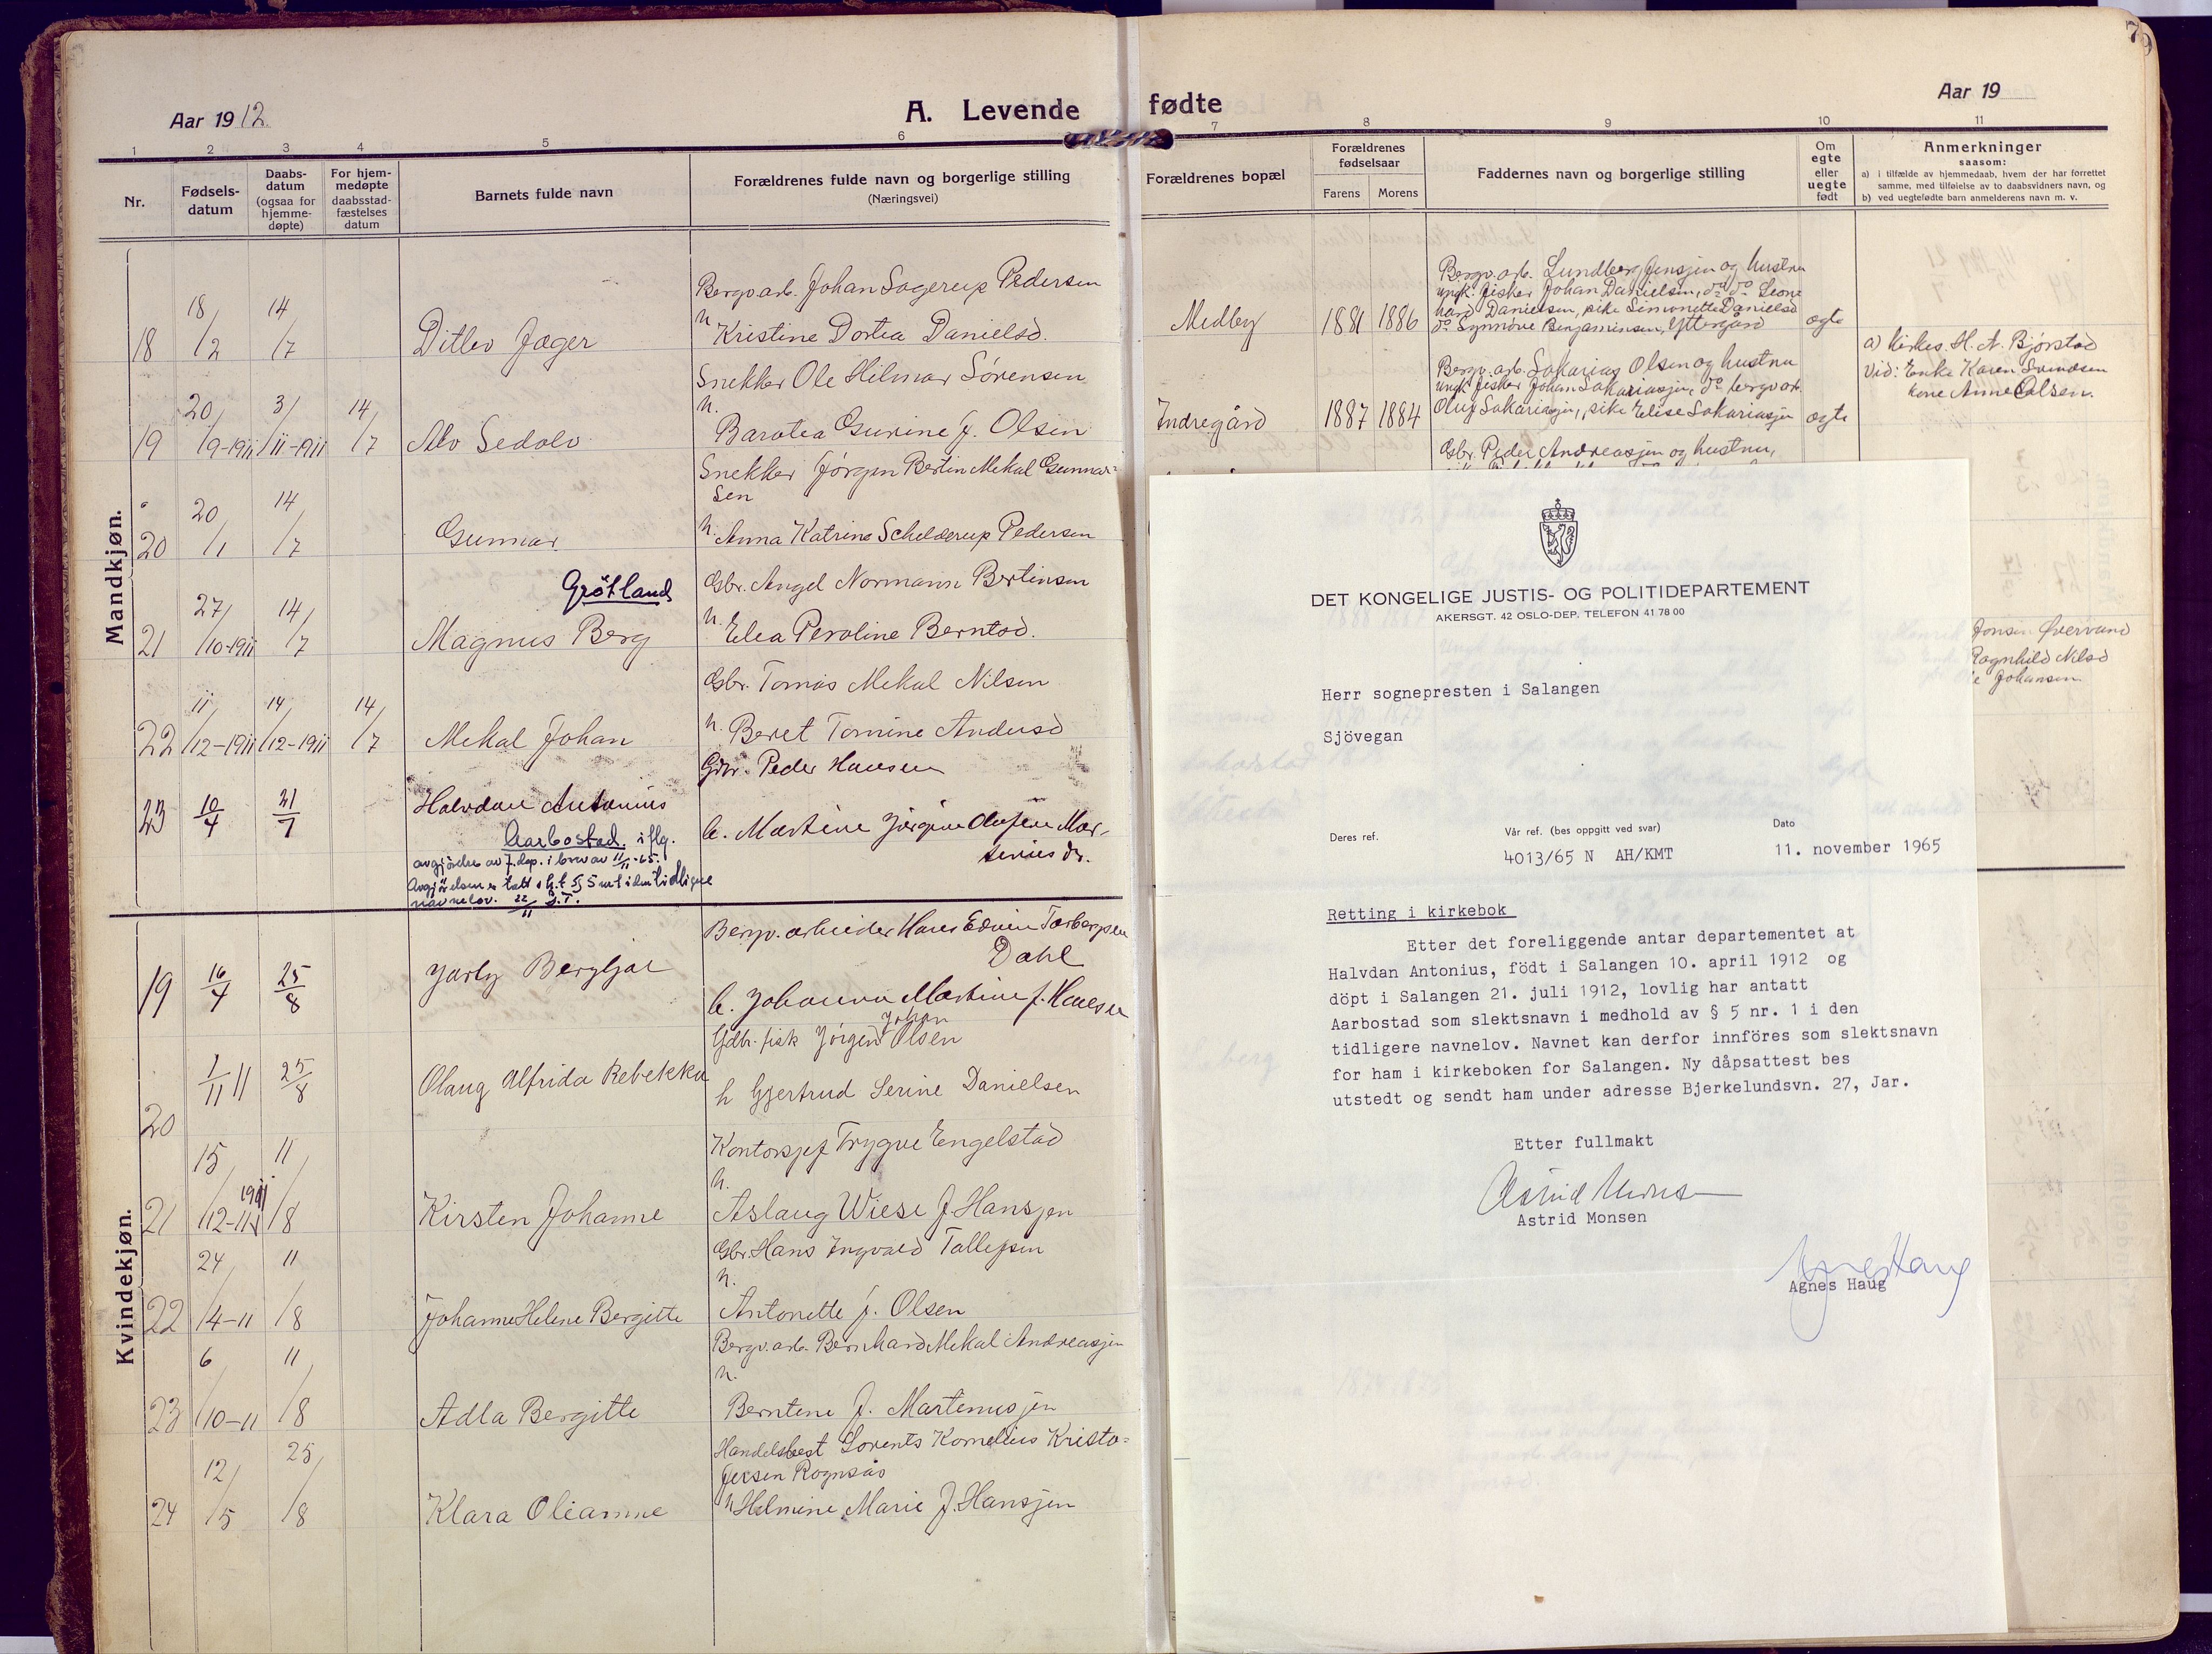 Aar 1912.
A. Levende
1 2 3 4 5 6
Nr.
Fødsels-
datum
Daabs-
datum
(ogsaa for
hjemme-
døpte)
For hjem-
medøpte
daabsstad-
fæstelses
datum
Barnets fulde navn
Forældrenes fulde navn og borgerlige stilling
(Næringsvei)
Mandkjøn.
Bergv.arb. Johan Sagerup Pedersen
18 18/2 14/7 Ditlev Jæger h. Kristine Dortea Danielsd.
Snekker Ole Hilmar Sørensen
h.
19 20/9-1911 3/11-1911 14/7 Alv Sedolv Barotea Gurine f. Olsen
Snekker Jørgen Bertin Mekal Gunnar=
sen
20 20/1 14/7 Gunnar h. Anna Katrine Schelderup Pedersen
Grøtland
Gbr. Angel Normann Bertinsen
21 27/10-1911 14/7 Magnus Berg h. Elea Peroline Berntsd.
Gbr. Tomas Mekal Nilsen
22 11/12-1911 14/12-1911 14/7 Mekal Johan h. Beret Tomine Andersd
Gbr. Peder Hansen
23 10/4 21/7 Halvdan Antonius
Aarbostad. iflg.
avgjørelse av J.dep. i brev av 11/11-65.
Avgjørelsen er tatt i h.t. § 5 nr 1 i den tidligere
navnelov. 22/11
Kvindekjøn.
Bergv. arbeider Hans Edvin Torbergsen
Dahl
19 16/4 25/8 Jarly Bergljot h. Johanna Martine f. Hansen
Johan
Gdbr. fisk Jørgen Olsen
20 1/11 11 25/8 Olaug Alfrida Rebekka h Gjertrud Serine Danielsen
Kontorsjef Trygve Engelstad
h.
21 15/12-11 1911 11/8 Kirsten Johanne Aslaug Wiese f. Hansjen
Gbr. Hans Ingvald Tollefsen
h.
22 24/4-11 11/8 Johanne Helene Bergitte Antonette f. Olsen
Bergv.arb. Bernhard Mekal Andreasjen
h.
23 6/10-11 11/8 Adla Bergitte Berntine f. Martinusjen
Handelsbest Lorents Kornelius Kristo=
fersen Rognsås
24 12/5 25/8 Klara Olianne h Helmine Marie f. Hansjen
79
fødte
Aar 19
7 8 9 10 11
Forældrenes bopæl
Forældrenes
fødselsaar
Farens Morens
Faddernes navn og borgerlige stilling
Om
egte
eller
uegte
født
Anmerkninger
saasom:
a) i tilfælde av hjemmedaab, hvem der har forrettet
samme, med tilføielse av to daabsvidners navn, og
b) ved uegtefødte barn anmelderens navn m. v.
Bergv. arb. Lundberg Jensjen og hustru
ungk. fisker Johan Danielsen, do do Leon=
hard Danielsen, pike Simonette Danielsd
Medby 1881 1886 do Synnøve Benjaminsen, Yttergård ægte
a) Kirkes. H. A. Bjørstad
Vid: Enke Karen Svendsen
kone Anne Olsen.
Bergv. arb. Sakarias Olsen og hustru
ungk. fisker Johan Sakariasjen, do bergv arb.
Indregård 1887 1884 Oluf Sakariasjen, pike Elise Sakariasjen ægte
Gbr. Peder Andreasjen og hustru,
Jonsen Øvervand
Ragnhild Nilsd
Johansen
DET KONGELIGE JUSTIS- OG POLITIDEPARTEMENT
AKERSGT. 42 OSLO-DEP. TELEFON 41 78 00
Herr sognepresten i Salangen
Sjövegan
Deres ref.
Vår ref. (bes oppgitt ved svar)
4013/65 N AH/KMT
Dato
11. november 1965
Retting i kirkebok
Etter det foreliggende antar departementet at
Halvdan Antonius, födt i Salangen 10. april 1912 og
döpt i Salangen 21. juli 1912, lovlig har antatt
Aarbostad som slektsnavn i medhold av § 5 nr. 1 i den
tidligere navnelov. Navnet kan derfor innföres som slektsnavn
for ham i kirkeboken for Salangen. Ny dåpsattest bes
utstedt og sendt ham under adresse Bjerkelundsvn. 27, Jar.
Etter fullmakt
Astrid Monsen
Astrid Monsen
Agnes Haug
Agnes Haug